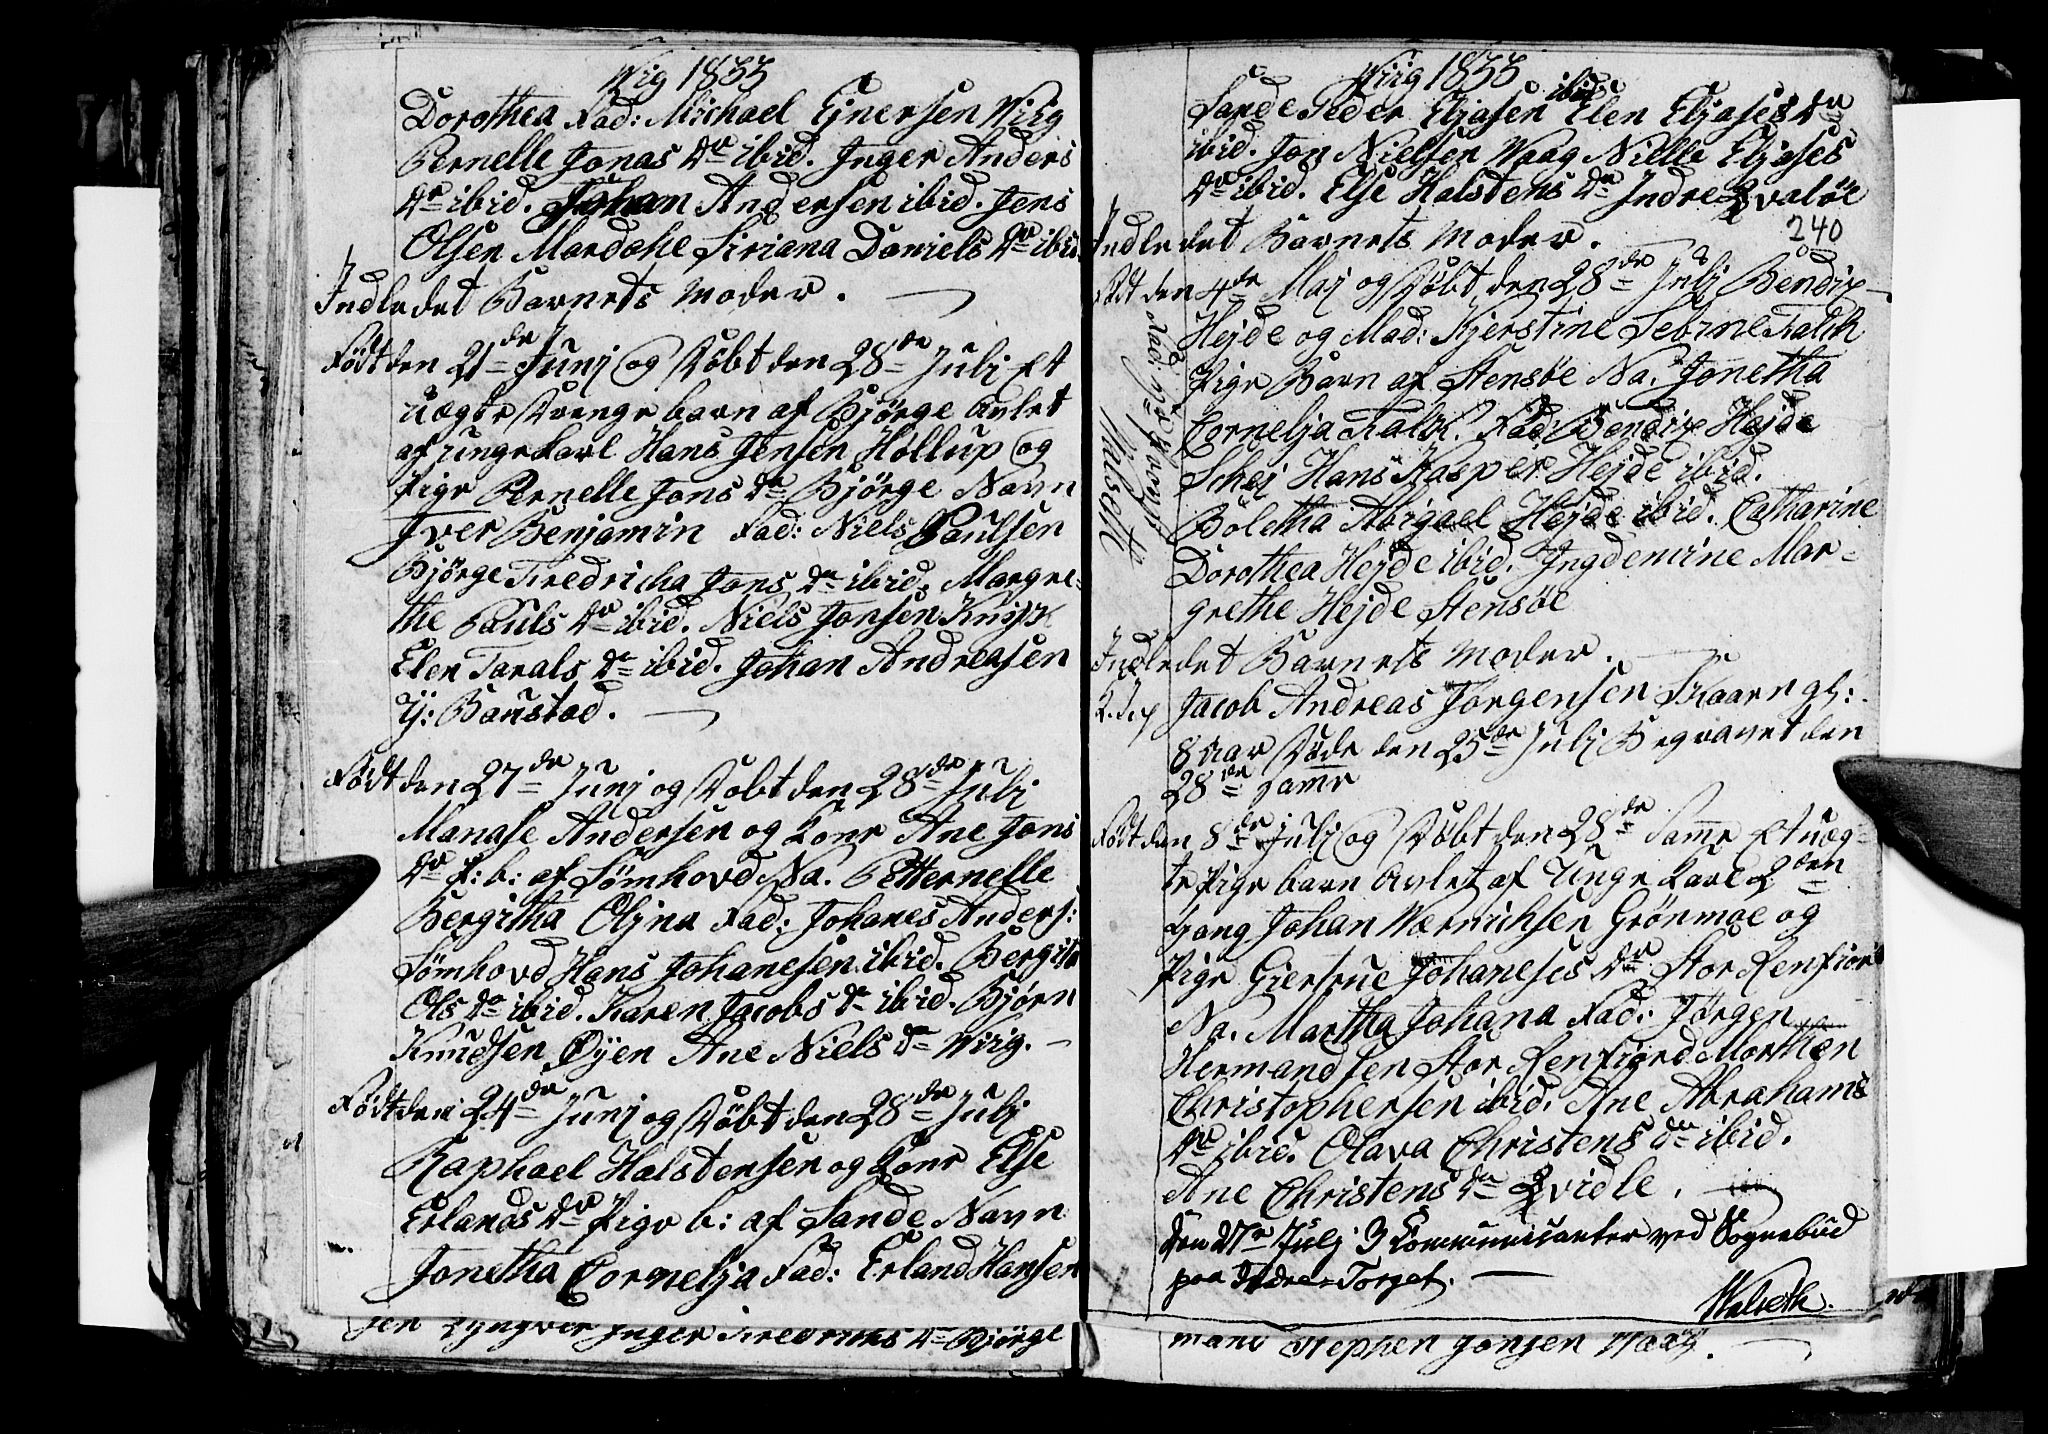 Wiig 1833
Dorothea Fad: Michael Ejnersen Wiig
Pernelle Jonas dr ibid. Inger Anders
dr ibid. Johan Andersen ibid. Jens
Olsen Mardahl Siriana Daniels dr ibid
Indledet Barnets Moder.
Født den 21de Junj og Døbt den 28de Julj Et
uægte Drenge barn af Bjørge Avlet
af unge karl Hans Jensen Hollup og
Pige Pernelle Jons dr Bjørge Navn
Iver Benjamin Fad: Niels Paulsen
Bjørge Fredricha Jons dr ibid. Margre-
the Pauls dr ibid. Niels Jonsen
Elen Tarals dr ibid. Johan Andreasen
Y: Baustad.
Født den 27de Junj og Døbt den 28de Julj
Manase Andersen og Kone Ane Jons
dr P: b: af Sømhovd Na. Petternelle
Bergitha Oljna Fad: Johanes Anders:
Sømhovd Hans Johanesen ibid. Bergita
Ols dr ibid. Karen Jacobs dr ibid. Bjørn
Knudsen Øyen Ane Niels dr Wiig.
Født den 24de Junj og Døbt den 28de Julj
Raphael Halstensen og Kone Else
Erlands dr Pige b: af Sande Navn
Jonetha Cornelja Fad: Erland Hansen
sen Inger Fredriks dr Bjørge
Wiig 1833
Sande Peder Eljasen ibid Elen Eljases dr
ibid. Jon Nielsen Waag Nielle Eljases
dr ibid. Else Halstens dr Indre Qvaløe
240
Indledet Barnets Moder.
Født den 4de Maj og Døbt den 28de Julj Bendix
Hejde og Mad: Kjerstine Sebine Falch
Pige Barn af Stensøe Na. Jonetha
Cornelja Falch. Fad: Bendix Hejde
Schej Hans Kasper Hejde ibid.
Boletha Abigael Hejde ibid. Catharine
Dorothea Hejde ibid. Ingdemine Mar-
grethe Hejde Stensøe
Indledet Barnets Moder.
Jacob Andreas Jørgensen Skaarn gl:
8 aar Døde den 25de Julj Begravet den
28de Same
Født den 8de Julj og Døbt den 28de Same Et uæg-
te Pige barn Avlet af Unge karl 2den
Gang Johan Wærnichsen Grønmoe og
Pige Giertrue Johaneses dr Stor Renfiord
Na. Martha Johana Fad: Jørgen
Hermandsen Stor Renfiord Morthen
Christophersen ibid. Ane Abrahams
dr ibid. Olava Christens dr ibid.
Ane Christens dr Qvidle.
Den 27de Julj 3 Communicanter ved Sognebud
paa Indre-Torget.
Walseth.
mand Stephen Jonsen Waag.